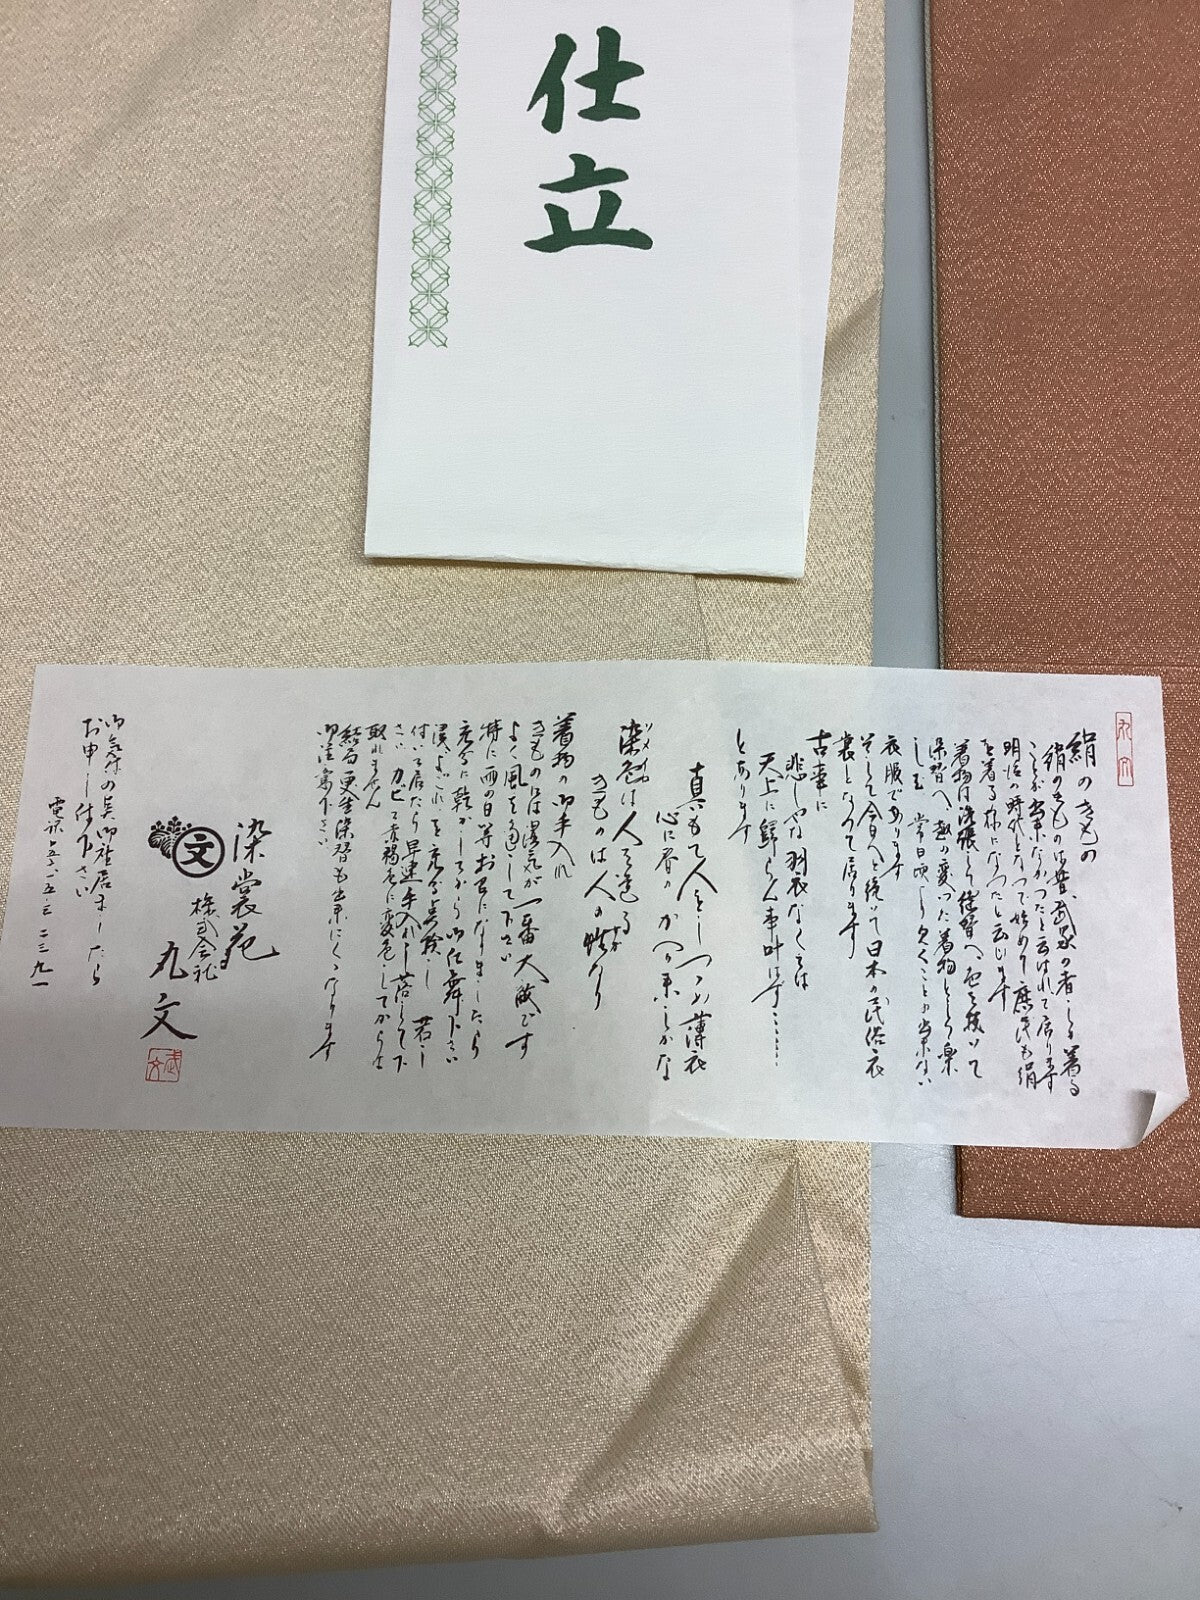 仕立
絹のきもの
絹のきものは昔、武家の者しか着る
ことが出来なかったと云はれて居ります
明治の時代となって始めて庶民も絹
を着る様になったと云います
着物は洗張し 染替へ 色を抜いて
染替へ 趣の変った着物として楽
しむ 常日頃 欠くことの出来ない
衣服であります
そして今日へと続いて日本の民俗衣
裳となって居ります
古事に
悲しやな羽衣なくては
天上に帰らん事叶はず……
とあります
真もて人をしつつめ薄衣
心に春の
染色は人を
きものは人の
着物の御手入れ
きものには湿気が一番大敵です
よく風を通して下さい
特に雨の日等お召になりましたら
充分に乾かしてから御仕舞下さい
汚、よごれを充分点検し 若し
付いて居たら早速手入れし落として下
さい カビて赤褐色に変色してからは
取れません
結局更生染替も出来にくくなります
御注意下さい
染裳苑
文
株式会社
丸文
御気付の点御座居ましたら
お申し付下さい